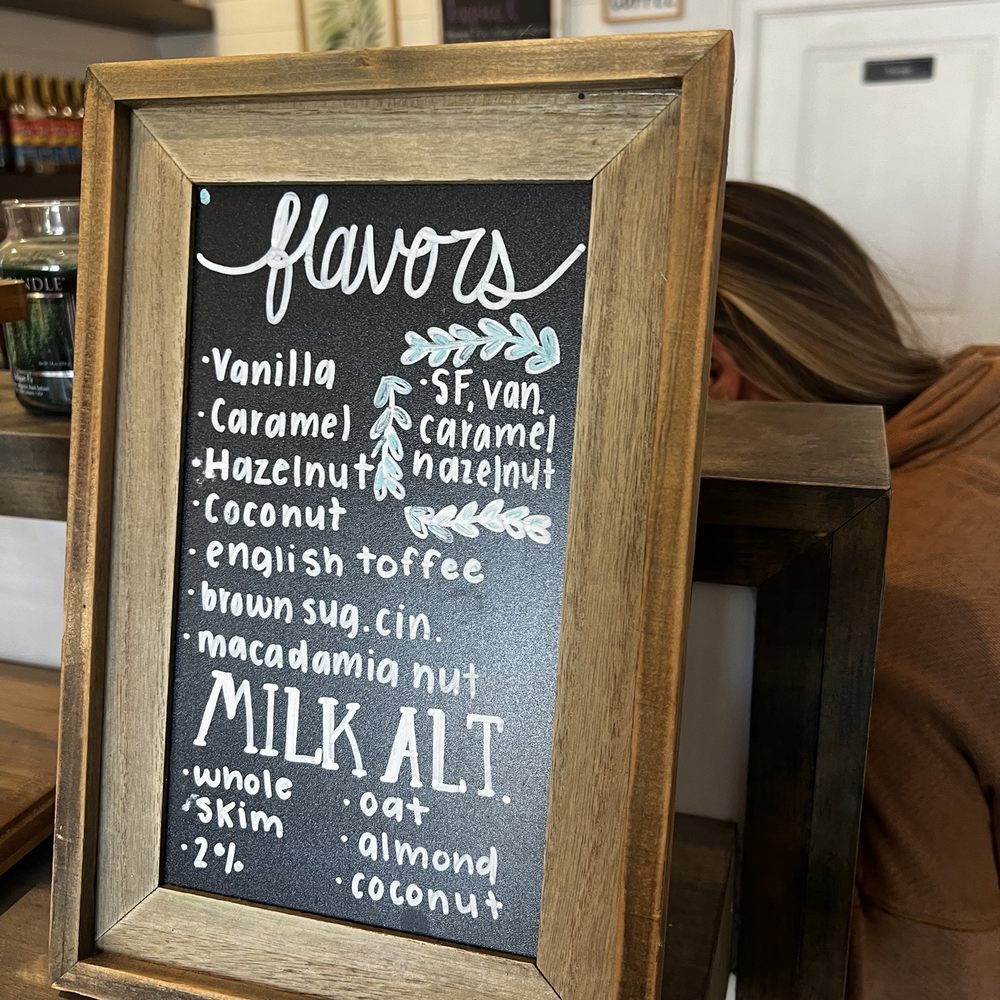 flavors
·Vanilla
·Caramel
·Hazelnut
·Coconut
·english toffee
·brown sug.cin.
·macadamia nut
·SF, van.
caramel
hazelnut
MILK ALT.
·whole
·skim
·2%
·oat
·almond
·coconut
NDLE